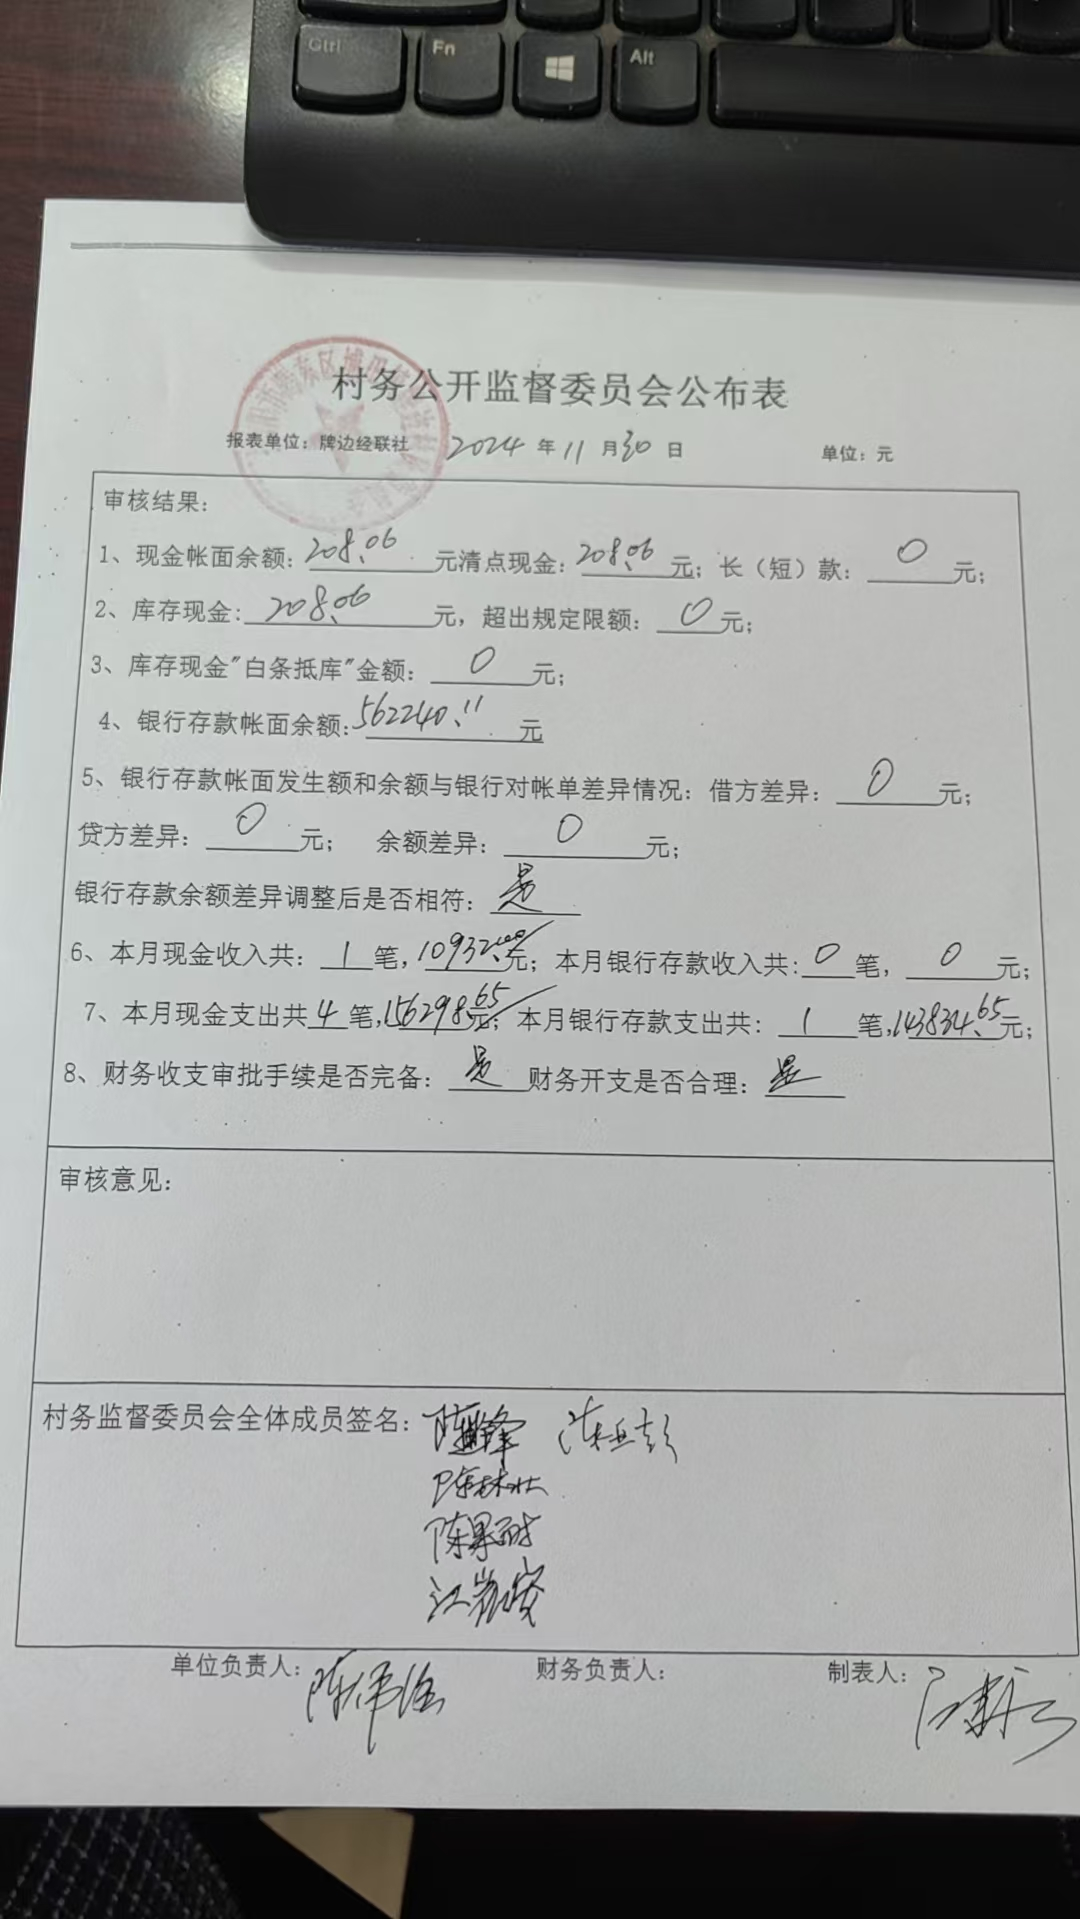 Ctrl Fn Alt
村务公开监督委员会公布表
报表单位：牌边经联社 2024 年 11 月 30 日 单位：元
审核结果：
1、现金帐面余额：208.06 元清点现金：208.06 元；长（短）款：0 元；
2、库存现金：208.06 元，超出规定限额：0 元；
3、库存现金"白条抵库"金额：0 元；
4、银行存款帐面余额：562240.11 元
5、银行存款帐面发生额和余额与银行对帐单差异情况：借方差异：0 元；
贷方差异：0 元； 余额差异：0 元；
银行存款余额差异调整后是否相符：是
6、本月现金收入共：1 笔，10932.00 元；本月银行存款收入共：0 笔，0 元；
7、本月现金支出共 4 笔，156298.65 元；本月银行存款支出共：1 笔，143834.65 元；
8、财务收支审批手续是否完备：是 财务开支是否合理：是
审核意见：
村务监督委员会全体成员签名：
单位负责人： 财务负责人： 制表人：